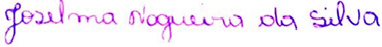 Joselma Nogueira da Silva